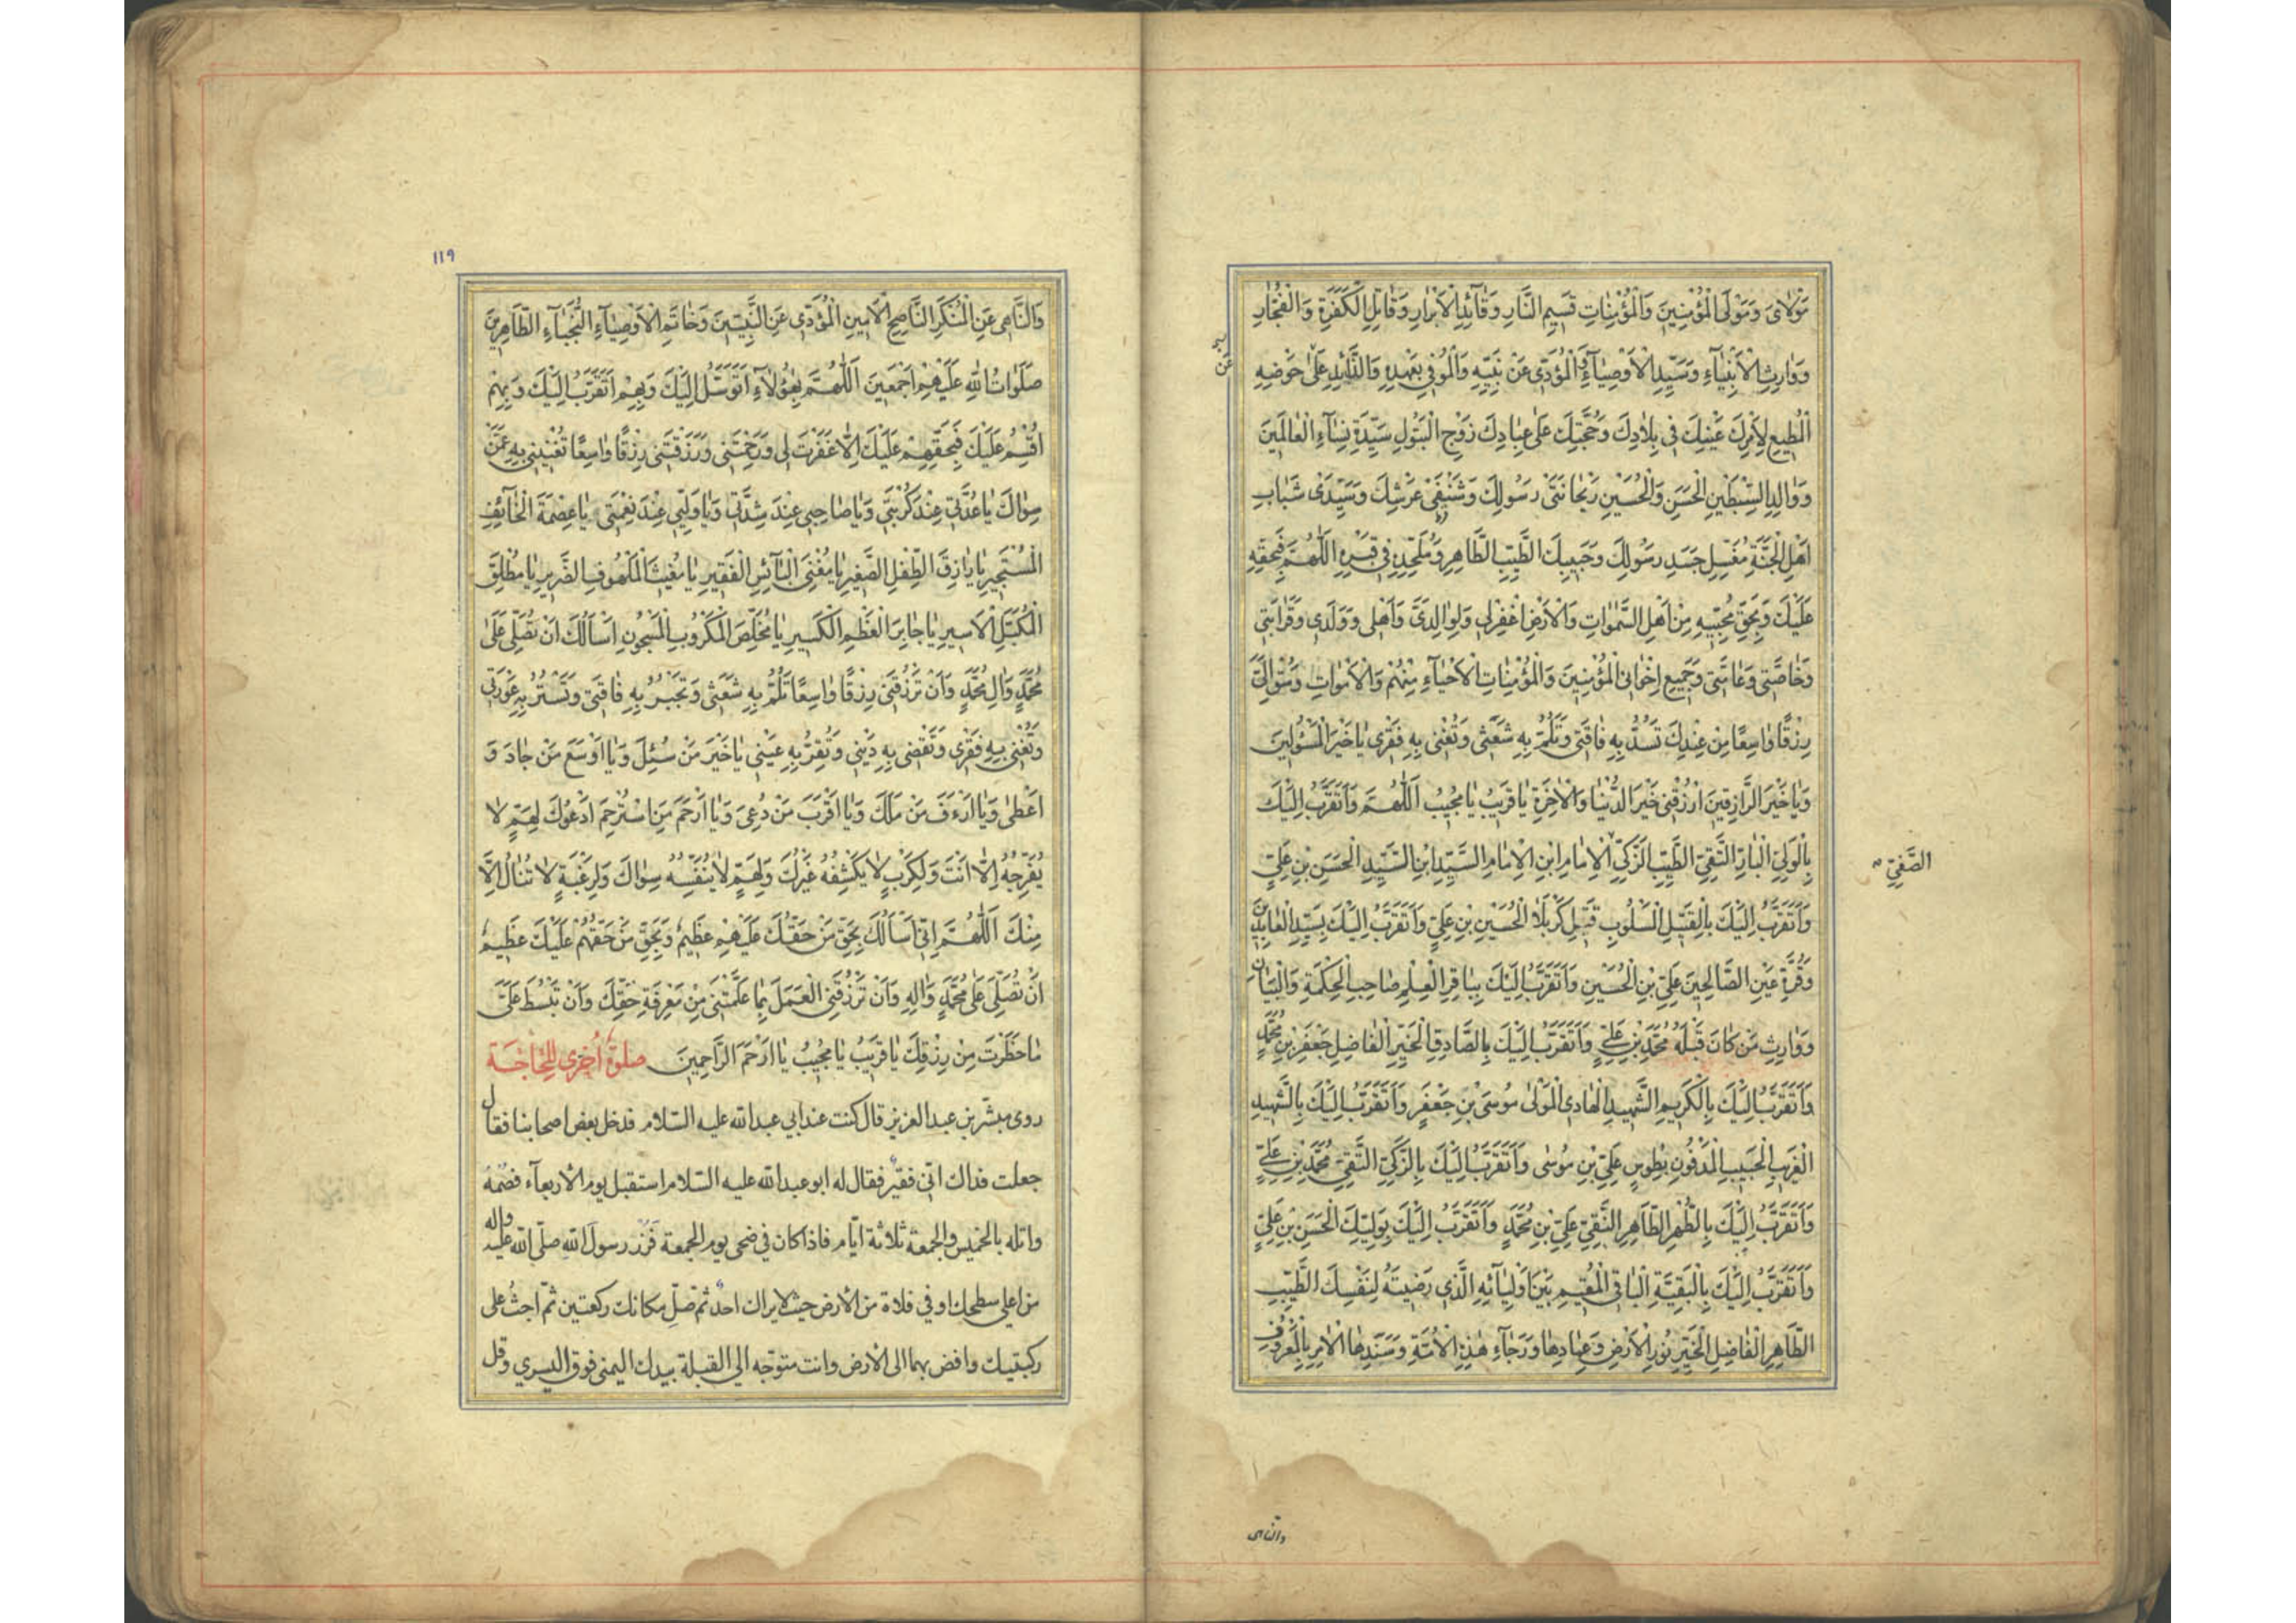 مَوْلَاىَ وَمَوْلَى الْمُؤْمِنِينَ وَالْمُؤْمِنَاتِ قَسِيمِ النَّارِ وَقَآئِدِ الْأَبْرَارِ وَقَاتِلِ الْكَفَرَةِ وَالْفُجَّارِ
وَوَارِثِ الْأَنْبِيَآءِ وَسَيِّدِ الْأَوْصِيَآءِ وَالْمُؤَدِّى عَنْ نَبِيِّهِ وَالْمُوفِى بِعَهْدِهِ وَالذَّآئِدِ عَلَى حَوْضِهِ
الْمُطِيعِ لِأَمْرِكَ عَيْنِكَ فِى بِلَادِكَ وَحُجَّتِكَ عَلَى عِبَادِكَ زَوْجِ الْبَتُولِ سَيِّدَةِ نِسَآءِ الْعَالَمِينَ
وَوَالِدِ السِّبْطَيْنِ الْحَسَنِ وَالْحُسَيْنِ رَيْحَانَتَىْ رَسُولِكَ وَشَنْفَىْ عَرْشِكَ وَسَيِّدَىْ شَبَابِ
أَهْلِ الْجَنَّةِ مُغَسِّلِ جَسَدِ رَسُولِكَ وَحَبِيبِكَ الطَّيِّبِ الطَّاهِرِ وَمُلْحِدِهِ فِى قَبْرِهِ اللَّهُمَّ فَبِحَقِّهِ
عَلَيْكَ وَبِحَقِّ مُحِبِّيهِ مِنْ أَهْلِ السَّمٰوَاتِ وَالْأَرْضِ اغْفِرْلِى وَلِوَالِدَىَّ وَأَهْلِى وَوَلَدِى وَقَرَابَتِى
وَخَاصَّتِى وَعَامَّتِى وَجَمِيعِ إِخْوَانِى الْمُؤْمِنِينَ وَالْمُؤْمِنَاتِ الْأَحْيَآءِ مِنْهُمْ وَالْأَمْوَاتِ وَسُقْ إِلَىَّ
رِزْقًا وَاسِعًا مِنْ عِنْدِكَ تَسُدُّ بِهِ فَاقَتِى وَتَلُمُّ بِهِ شَعَثِى وَتُغْنِى بِهِ فَقْرِى يَا خَيْرَ الْمَسْئُولِينَ
وَيَا خَيْرَ الرَّازِقِينَ ارْزُقْنِى خَيْرَ الدُّنْيَا وَالْآخِرَةِ يَا قَرِيبُ يَا مُجِيبُ اَللَّهُمَّ وَأَتَقَرَّبُ إِلَيْكَ
بِالْوَلِىِّ الْبَارِّ التَّقِىِّ الطَّيِّبِ الزَّكِىِّ الْإِمَامِ ابْنِ الْإِمَامِ السَّيِّدِ ابْنِ السَّيِّدِ الْحَسَنِ بْنِ عَلِىٍّ
الصَّفِىِّ
وَأَتَقَرَّبُ إِلَيْكَ بِالْقَتِيلِ الْمَسْلُوبِ قَتِيلِ كَرْبَلَا الْحُسَيْنِ بْنِ عَلِىٍّ وَأَتَقَرَّبُ إِلَيْكَ بِسَيِّدِ الْعَابِدِينَ
وَقُرَّةِ عَيْنِ الصَّالِحِينَ عَلِىِّ بْنِ الْحُسَيْنِ وَأَتَقَرَّبُ إِلَيْكَ بِبَاقِرِ الْعِلْمِ صَاحِبِ الْحِكْمَةِ وَالْبَيَانِ
وَوَارِثِ مَنْ كَانَ قَبْلَهُ مُحَمَّدِ بْنِ عَلِىٍّ وَأَتَقَرَّبُ إِلَيْكَ بِالصَّادِقِ الْخَيِّرِ الْفَاضِلِ جَعْفَرِ بْنِ مُحَمَّدٍ
وَأَتَقَرَّبُ إِلَيْكَ بِالْكَرِيمِ الشَّهِيدِ الْهَادِى الْمَوْلَى مُوسَى بْنِ جَعْفَرٍ وَأَتَقَرَّبُ إِلَيْكَ بِالشَّهِيدِ
الْغَرِيبِ الْحَبِيبِ الْمَدْفُونِ بِطُوسٍ عَلِىِّ بْنِ مُوسٰى وَأَتَقَرَّبُ إِلَيْكَ بِالزَّكِىِّ التَّقِىِّ مُحَمَّدِ بْنِ عَلِىٍّ
وَأَتَقَرَّبُ إِلَيْكَ بِالطُّهْرِ الطَّاهِرِ النَّقِىِّ عَلِىِّ بْنِ مُحَمَّدٍ وَأَتَقَرَّبُ إِلَيْكَ بِوَلِيِّكَ الْحَسَنِ بْنِ عَلِىٍّ
وَأَتَقَرَّبُ إِلَيْكَ بِالْبَقِيَّةِ الْبَاقِى الْمُقِيمِ بَيْنَ أَوْلِيَآئِهِ الَّذِى رَضِيتَهُ لِنَفْسِكَ الطَّيِّبِ
الطَّاهِرِ الْفَاضِلِ الْخَيِّرِ نُورِ الْأَرْضِ وَعِمَادِهَا وَرَجَآءِ هٰذِهِ الْأُمَّةِ وَسَنَدِهَا الْآمِرِ بِالْمَعْرُوفِ
والناهى
١١٩
وَالنَّاهِى عَنِ الْمُنْكَرِ النَّاصِحِ الْأَمِينِ الْمُؤَدِّى عَنِ النَّبِيِّينَ وَخَاتَمِ الْأَوْصِيَآءِ النُّجَبَآءِ الطَّاهِرِينَ
صَلَوَاتُ اللهِ عَلَيْهِمْ أَجْمَعِينَ اَللّٰهُمَّ بِهٰؤُلَآءِ أَتَوَسَّلُ إِلَيْكَ وَبِهِمْ أَتَقَرَّبُ إِلَيْكَ وَبِهِمْ
أُقْسِمُ عَلَيْكَ فَبِحَقِّهِمْ عَلَيْكَ إِلَّا غَفَرْتَ لِى وَرَحِمْتَنِى وَرَزَقْتَنِى رِزْقًا وَاسِعًا تُغْنِينِى بِهِ عَمَّنْ
سِوَاكَ يَا عُدَّتِى عِنْدَ كُرْبَتِى وَيَا صَاحِبِى عِنْدَ شِدَّتِى وَيَا وَلِيِّى عِنْدَ نِعْمَتِى يَا عِصْمَةَ الْخَآئِفِ
الْمُسْتَجِيرِ يَا رَازِقَ الطِّفْلِ الصَّغِيرِ يَا مُغْنِىَ الْبَآئِسِ الْفَقِيرِ يَا مُغِيثَ الْمَلْهُوفِ الضَّرِيرِ يَا مُطْلِقَ
الْمُكَبَّلِ الْأَسِيرِ يَا جَابِرَ الْعَظْمِ الْكَسِيرِ يَا مُخَلِّصَ الْمَكْرُوبِ الْمَسْجُونِ أَسْأَلُكَ أَنْ تُصَلِّىَ عَلَى
مُحَمَّدٍ وَآلِ مُحَمَّدٍ وَأَنْ تَرْزُقَنِى رِزْقًا وَاسِعًا تَلُمُّ بِهِ شَعَثِى وَتَجْبُرُ بِهِ فَاقَتِى وَتَسْتُرُ بِهِ عَوْرَتِى
وَتُغْنِى بِهِ فَقْرِى وَتَقْضِى بِهِ دَيْنِى وَتُقِرُّ بِهِ عَيْنِى يَا خَيْرَ مَنْ سُئِلَ وَيَا أَوْسَعَ مَنْ جَادَ وَ
أَعْطَى وَيَا أَرْءَفَ مَنْ مَلَكَ وَيَا أَقْرَبَ مَنْ دُعِىَ وَيَا أَرْحَمَ مَنِ اسْتُرْحِمَ أَدْعُوكَ لِهَمٍّ لَا
يُفَرِّجُهُ إِلَّا أَنْتَ وَلِكَرْبٍ لَا يَكْشِفُهُ غَيْرُكَ وَلِهَمٍّ لَا يُنَفِّسُهُ سِوَاكَ وَلِرَغْبَةٍ لَا تُنَالُ إِلَّا
مِنْكَ اَللّٰهُمَّ إِنِّى أَسْأَلُكَ بِحَقِّ مَنْ حَقُّكَ عَلَيْهِمْ عَظِيمٌ وَبِحَقِّ مَنْ حَقُّهُمْ عَلَيْكَ عَظِيمٌ
أَنْ تُصَلِّىَ عَلَى مُحَمَّدٍ وَآلِهِ وَأَنْ تَرْزُقَنِى الْعَمَلَ بِمَا عَلَّمْتَنِى مِنْ مَعْرِفَةِ حَقِّكَ وَأَنْ تَبْسُطَ عَلَىَّ
مَا حَظَرْتَ مِنْ رِزْقِكَ يَا قَرِيبُ يَا مُجِيبُ يَا أَرْحَمَ الرَّاحِمِينَ صلوة أخرى للحاجة
روى مبشّر بن عبد العزيز قال كنت عند ابي عبد الله عليه السّلام فدخل بعض اصحابنا فقال
جعلت فداك انّي فقير فقال له ابو عبد الله عليه السّلام استقبل يوم الأربعآء فصُمْهُ
واتله بالخميس والجمعة ثلاثة ايّام فاذا كان في ضحى يوم الجمعة فَزُرْ رسولَ الله صلّى الله عليه وآله
من اعلى سطحك او في فلاة من الأرض حيث لا يراك احدٌ ثمّ صلِّ مكانك ركعتين ثمّ اجثُ على
ركبتيك وافض بهما الى الأرض وانت متوجّه الى القبلة بيدك اليمنى فوق اليسرى وقل